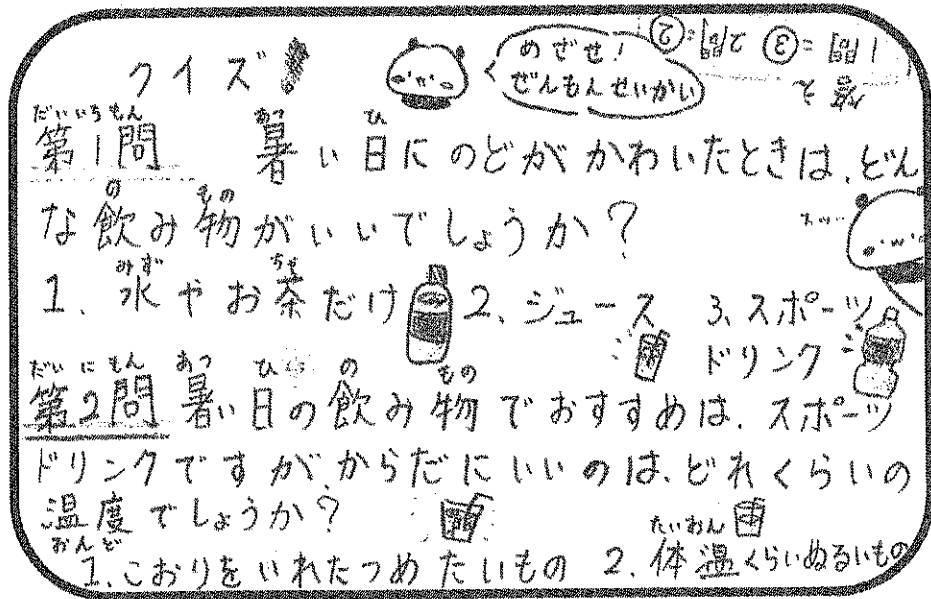 クイズ
めざせ!
ぜんもんせいかい
答え
1問=③ 2問=②
だいいちもん あつ ひ
第1問 暑い日にのどがかわいたときは、どん
の もの
な飲み物がいいでしょうか?
みず ちゃ
1. 水やお茶だけ 2、ジュース 3、スポーツ
ドリンク
だいにもん あつ ひ の もの
第2問 暑い日の飲み物でおすすめは、スポーツ
ドリンクですが、からだにいいのは、どれくらいの
温度でしょうか?
おんど たいおん
1.こおりをいれたつめたいもの 2. 体温くらいぬるいもの